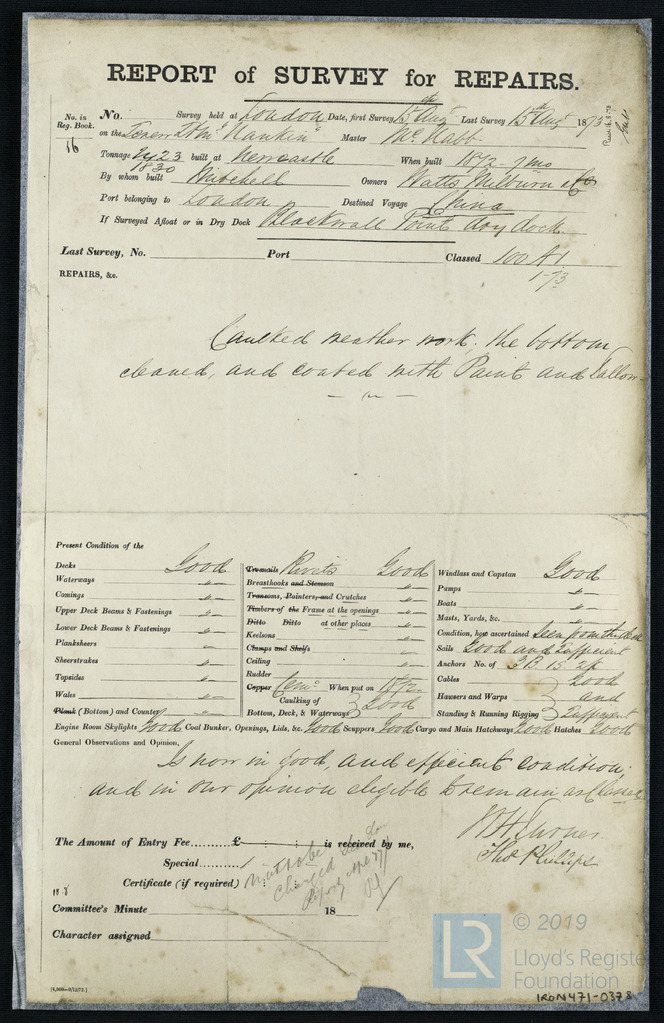 REPORT of SURVEY for REPAIRS.
No. in Reg. Book. No. Survey held at London Date, first Survey 13th Augt Last Survey 15th Augt 1873
16 on the "Rankin" Master McNabb
Tonnage 1830 built at Newcastle When built 1872 7 mo
By whom built Mitchell Owners Watts Milburn & Co
Port belonging to London Destined Voyage China
If Surveyed Afloat or in Dry Dock Blackwall Point dry dock
Last Survey, No. Port Classed 100 A1
REPAIRS, &c. 1-73
Caulked weather work; the bottom
cleaned, and coated with Paint and Tallow
Present Condition of the
Decks Good Treenails Rivets Good Windlass and Capstan Good
Waterways " Breasthooks and Stemson " Pumps "
Comings " Transoms, Pointers, and Crutches " Boats "
Upper Deck Beams & Fastenings " Timbers of the Frame at the openings " Masts, Yards, &c. "
Lower Deck Beams & Fastenings " Ditto Ditto at other places " Condition, how ascertained Seen from the deck
Planksheers " Keelsons " Sails Good and Sufficient
Sheerstrakes " Clamps and Shelfs " Anchors No. of 3B. 1S. 2K
Topsides " Ceiling " Cables Good
Wales " Rudder " Hawsers and Warps and
Plank (Bottom) and Counter " Copper Cemt When put on 1872 Standing & Running Rigging Sufficient
Caulking of Bottom, Deck, & Waterways Good
Engine Room Skylights Good Coal Bunker, Openings, Lids, &c. Good Scuppers Good Cargo and Main Hatchways Good Hatches Good
General Observations and Opinion,
Is now in good, and efficient condition;
and in our opinion eligible to remain as Classed
Thos Phillips
The Amount of Entry Fee £ : : is received by me,
Special
Certificate (if required) : :
Committee's Minute 18
Character assigned
© 2019
LR Lloyd's Register
Foundation
IRON471-0378